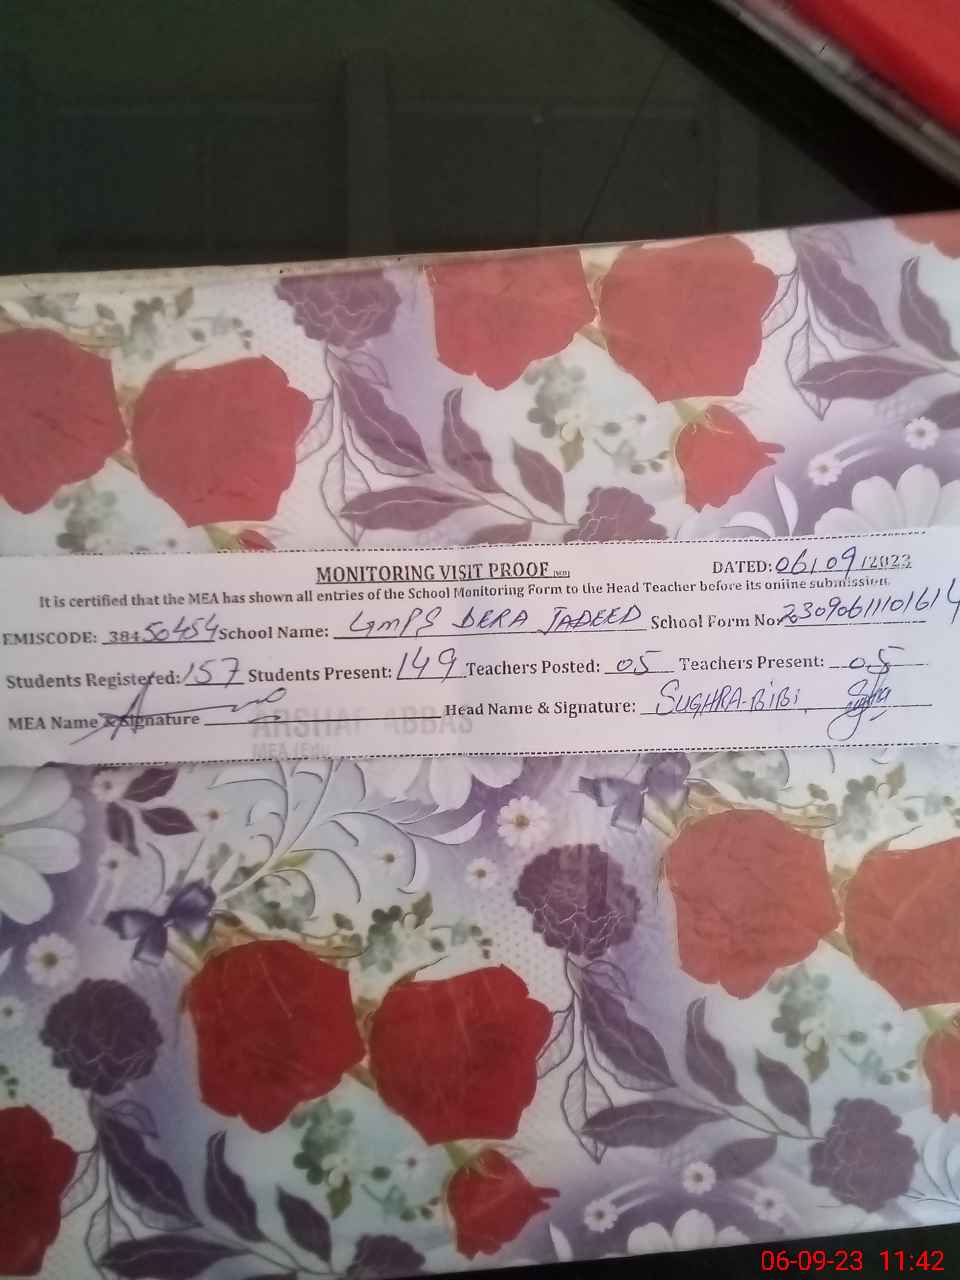 MONITORING VISIT PROOF DATED: 06/09/2023
It is certified that the MEA has shown all entries of the School Monitoring Form to the Head Teacher before its online submission.
EMISCODE: 38450454 School Name: GMPS DERA JADEED School Form No: 2309061110161
Students Registered: 157 Students Present: 149 Teachers Posted: 05 Teachers Present: 05
MEA Name & Signature Head Name & Signature: SUGHRA-BiBi
ARSHAF ABBAS
MEA (Edu
06-09-23 11:42